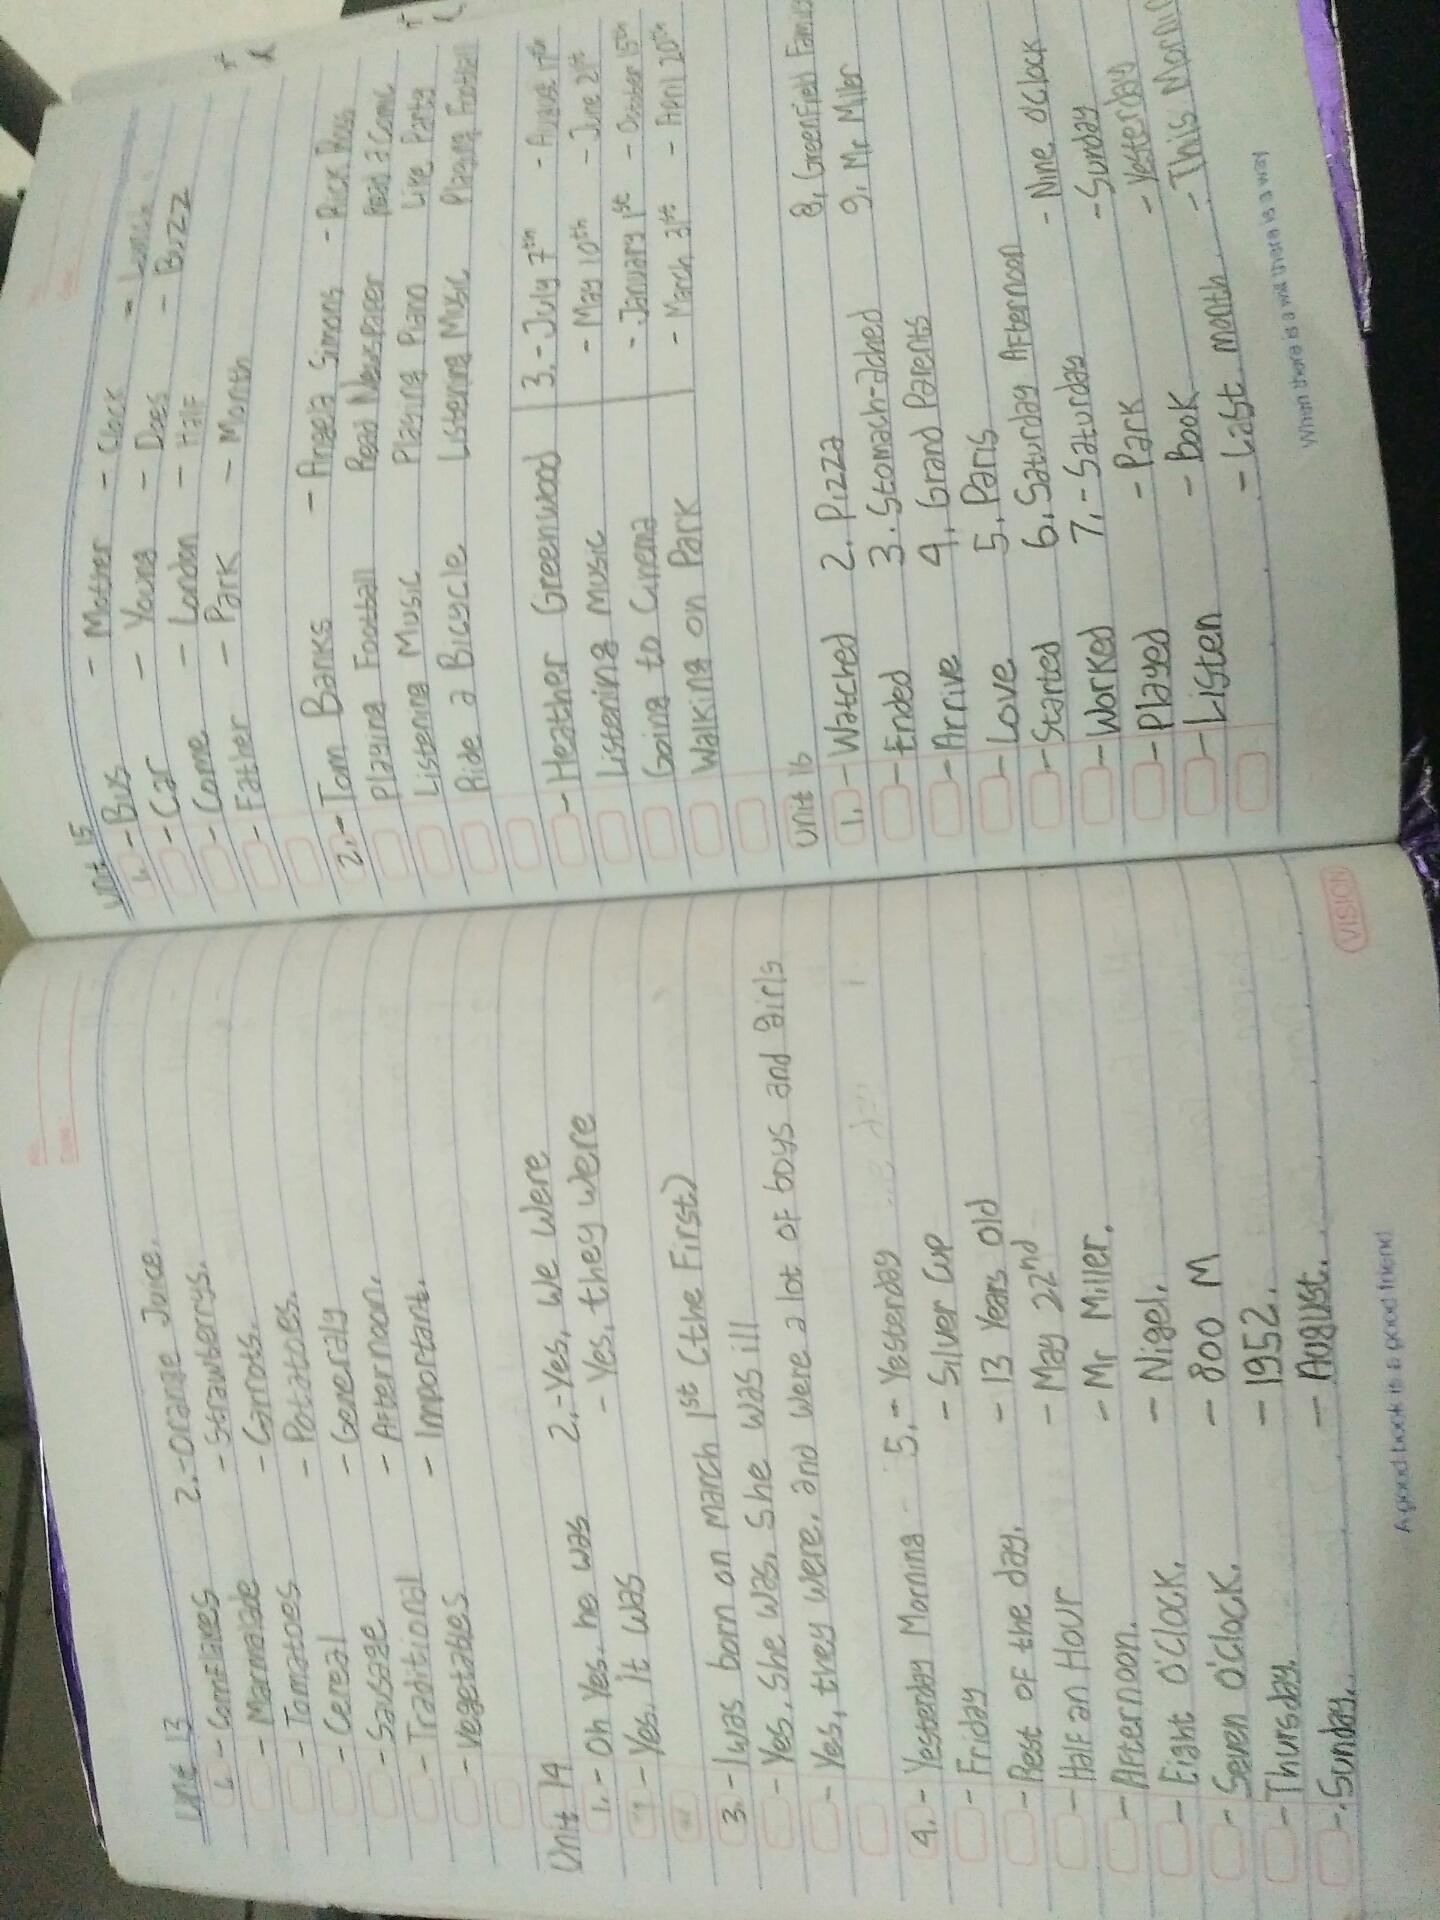 No:
Date:
Unit 13
1. - Cornflakes 2. - Orange Juice.
- Marmalade - Strawberrys.
- Tomatoes - Carrots.
- Cereal - Potatoes.
- Sausage - Generaly
- Traditional - Afternoon.
- Vegetables - Important.
Unit 14
1. - Oh Yes, he was 2. - Yes, We Were
- Yes, it was - Yes, they were
3. - I was born on March 1st (the First)
- Yes, She was, She was ill
- Yes, they were, and were a lot of boys and girls
4. - Yesterday Morning 5. - Yesterday
- Friday - Silver Cup
- Rest of the day. - 13 Years Old
- Half an Hour - May 22nd
- Afternoon. - Mr Miller.
- Eight O'Clock. - Nigel.
- Seven O'Clock. - 800 M
- Thursday. - 1952.
- Sunday. - August.
A good book is a good friend
VISION
Unit 15
1. - Bus - Mother - Clock
- Car - Young - Does - Buzz
- Come - London - Half
- Father - Park - Month
2. - Tom Banks - Angela Simons
Playing Football Read Newspaper Read a Comic
Listening Music Playing Piano Like Party
Ride a Bicycle Listening Music Playing Football
- Heather Greenwood 3. - July 7th - August 17th
Listening Music - May 10th - June 21st
Going to Cinema - January 1st - October 15th
Walking on Park - March 31st - April 20th
Unit 16
1. - Watched 2. Pizza 8. Greenfield
- Ended 3. Stomach-ached 9. Mr Miler
- Arrive 4. Grand Parents
- Love 5. Paris
- Started 6. Saturday Afternoon - Nine o'Clock
- Worked 7. - Saturday - Sunday
- Played - Park - Yesterday
- Listen - Book - This
- Last month
When there is a will there is a way